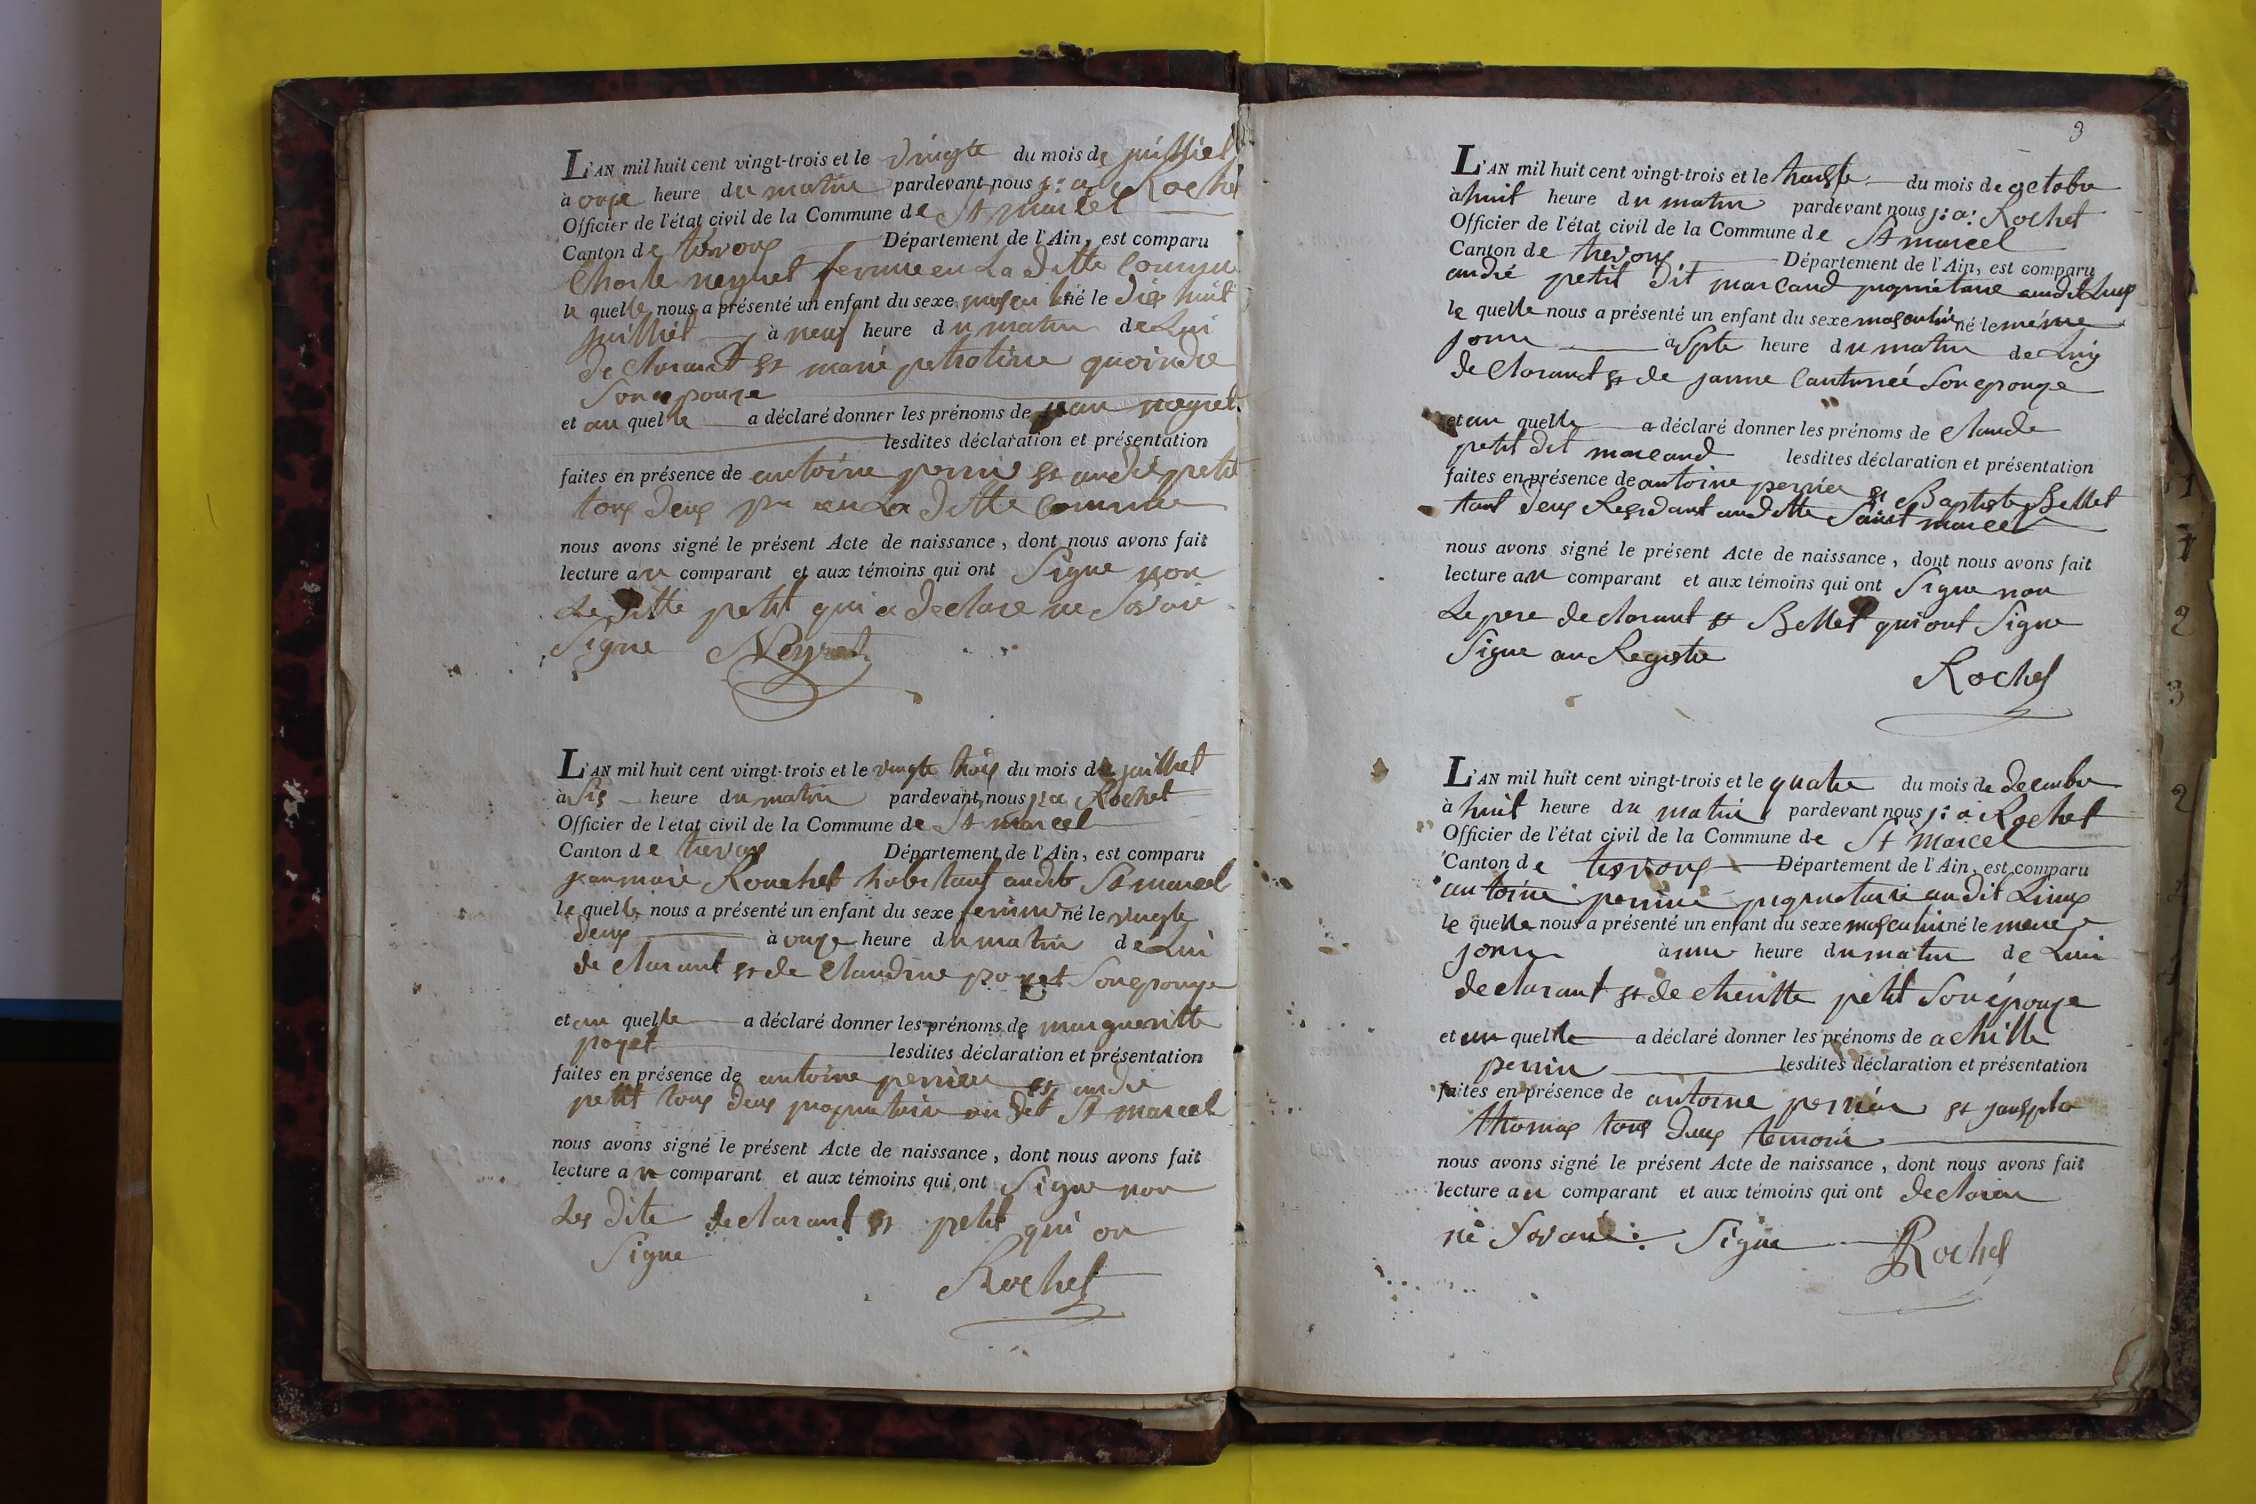 L'AN mil huit cent vingt-trois et le vingte du mois de juilliet
à onze heure du matin pardevant nous j: a Rochet
Officier de l'état civil de la Commune de St marcel
Canton de trevoux Département de l'Ain, est comparu
Charle neyret fermie en La ditte Commune
le quelle nous a présenté un enfant du sexe né le dix huit
juilliet à neuf heure du matin de Lui
declarant et marie petrotine quoindre
Son epouze
et au quelle a déclaré donner les prénoms de jean neyret
lesdites déclaration et présentation
faites en présence de antoine perrier et andré petit
tous deux pr en La ditte Commune
nous avons signé le présent Acte de naissance, dont nous avons fait
lecture au comparant et aux témoins qui ont Signe non
Le ditte petit qui a declare ne Savoir
Signe Neyret
L'AN mil huit cent vingt-trois et le vingte trois du mois de juilliet
à Six heure du matin pardevant nous j: a Rochet
Officier de l'état civil de la Commune de St marcel
Canton de trevoux Département de l'Ain, est comparu
jean marie Rouchet habitant audit St marcel
le quelle nous a présenté un enfant du sexe feminin né le vingte
deux à onze heure du matin de Lui
declarant et de Claudine poyet Son epouze
et au quelle a déclaré donner les prénoms de margueritte
poyet lesdites déclaration et présentation
faites en présence de antoine perrier et andre
petit tous deux proprietaire au dit St marcel
nous avons signé le présent Acte de naissance, dont nous avons fait
lecture au comparant et aux témoins qui ont Signe non
Les dite declarant et petit qui on
Signe
Rochet
3
L'AN mil huit cent vingt-trois et le du mois de octobre
à huit heure du matin pardevant nous j: a: Rochet
Officier de l'état civil de la Commune de St marcel
Canton de trevoux Département de l'Ain, est comparu
andré petit dit marcand propriétaire audit Lieux
le quelle nous a présenté un enfant du sexe masculin né le même
jour à Spte heure du matin de Luy
declarant et de janne Son epouze
et au quelle a déclaré donner les prénoms de claude
petit dit marcand lesdites déclaration et présentation
faites en présence de antoine perrier et Baptiste Bellet
tout deux Residant auditte Saint marcel
nous avons signé le présent Acte de naissance, dont nous avons fait
lecture au comparant et aux témoins qui ont Signe non
Le pere declarant et Bellet qui ont Signe
Signe au Registre
Rochet
L'AN mil huit cent vingt-trois et le quatre du mois de decembre
à huit heure du matin pardevant nous j: a Rochet
Officier de l'état civil de la Commune de St Marcel
Canton de trevoux Département de l'Ain, est comparu
antoine perrin propriétaire audit Lieux
le quelle nous a présenté un enfant du sexe masculin né le meme
jour à une heure du matin de Lui
declarant et de cheritte petit Son épouze
et au quelle a déclaré donner les prénoms de achille
perrin lesdites déclaration et présentation
faites en présence de antoine perrier et
thomas tous deux temoin
nous avons signé le présent Acte de naissance, dont nous avons fait
lecture au comparant et aux témoins qui ont declarer
ne Signe
Rochet